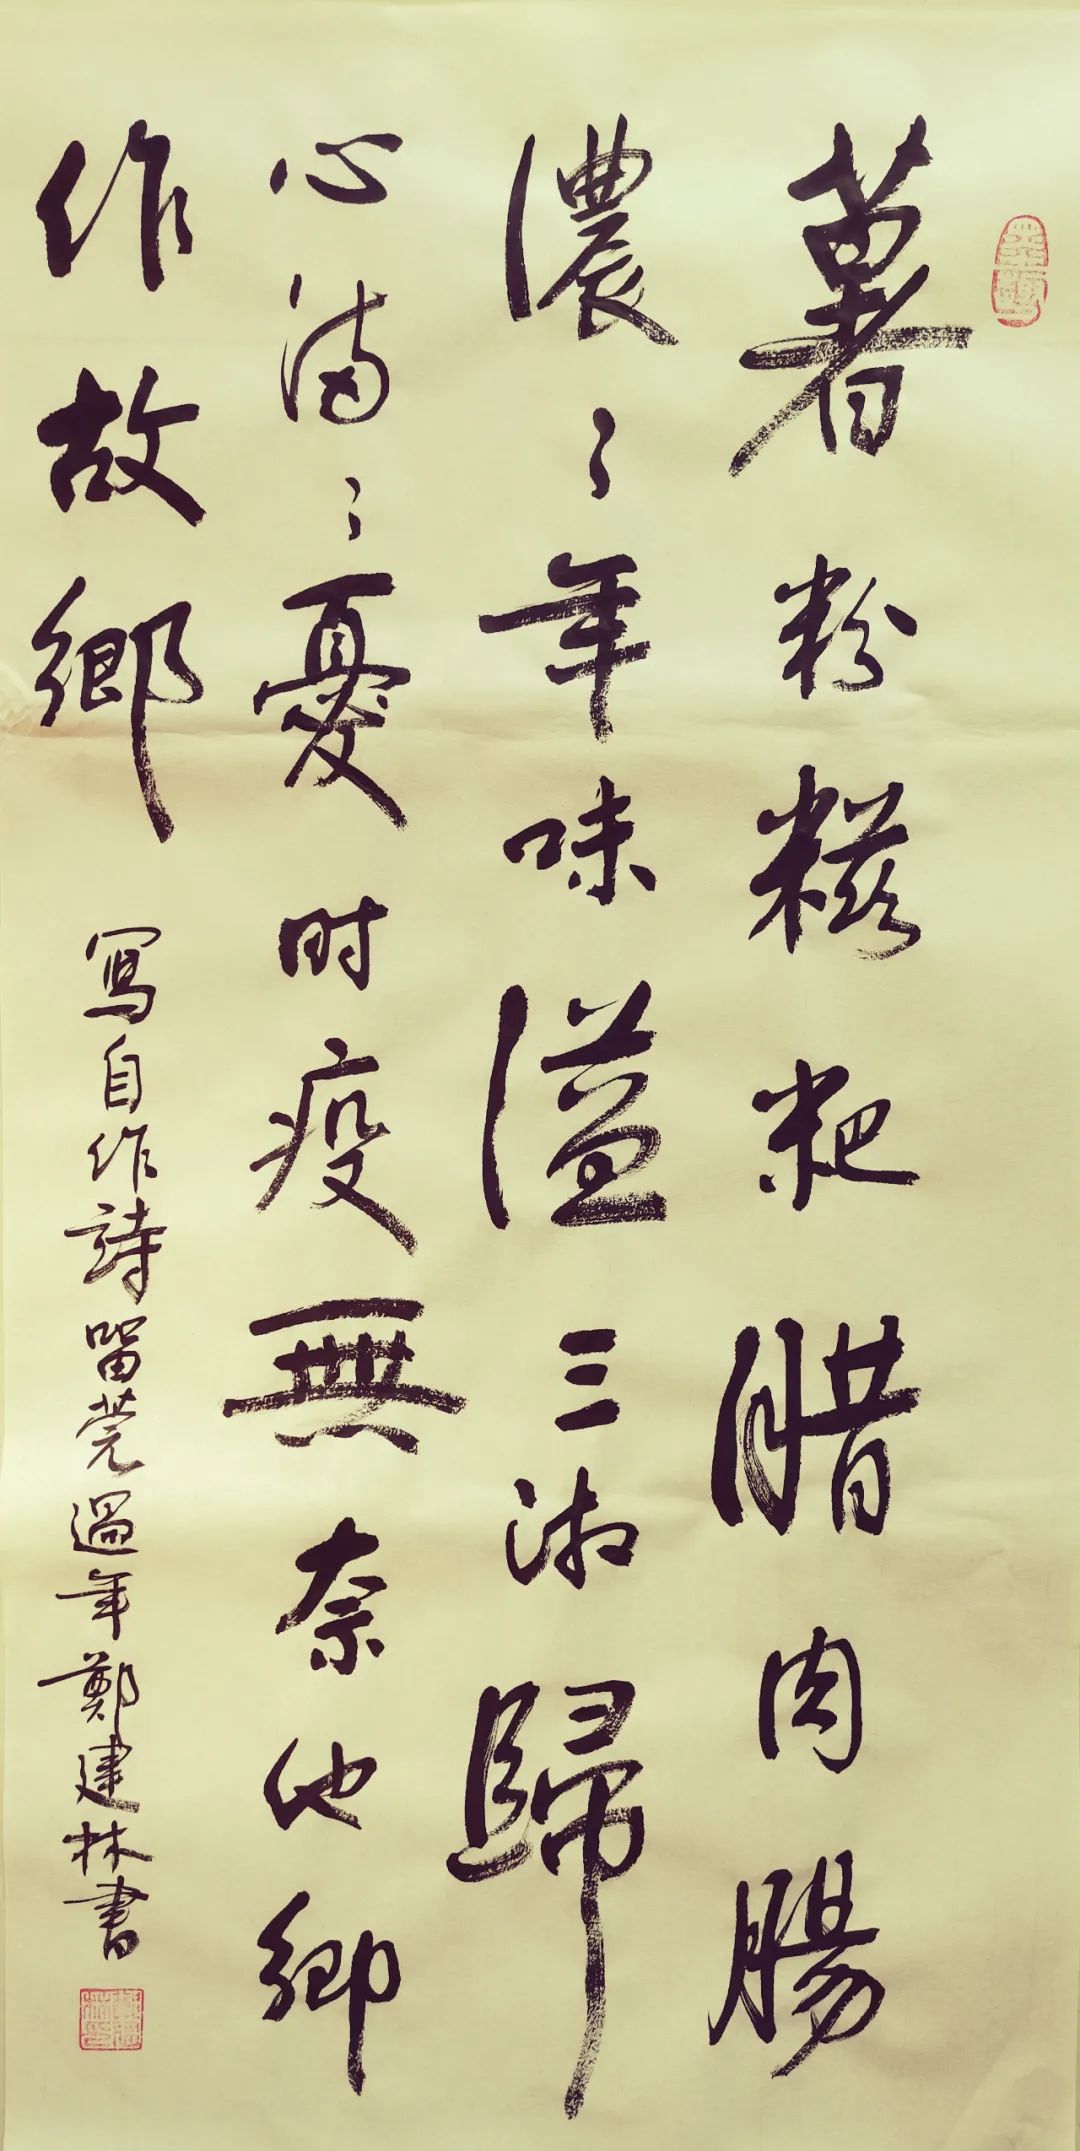 薯粉糍粑腊肉腸
濃々年味溢三湘歸
心满々憂时疫無奈他鄉
作故鄉
寫自作詩留莞過年鄭建林書